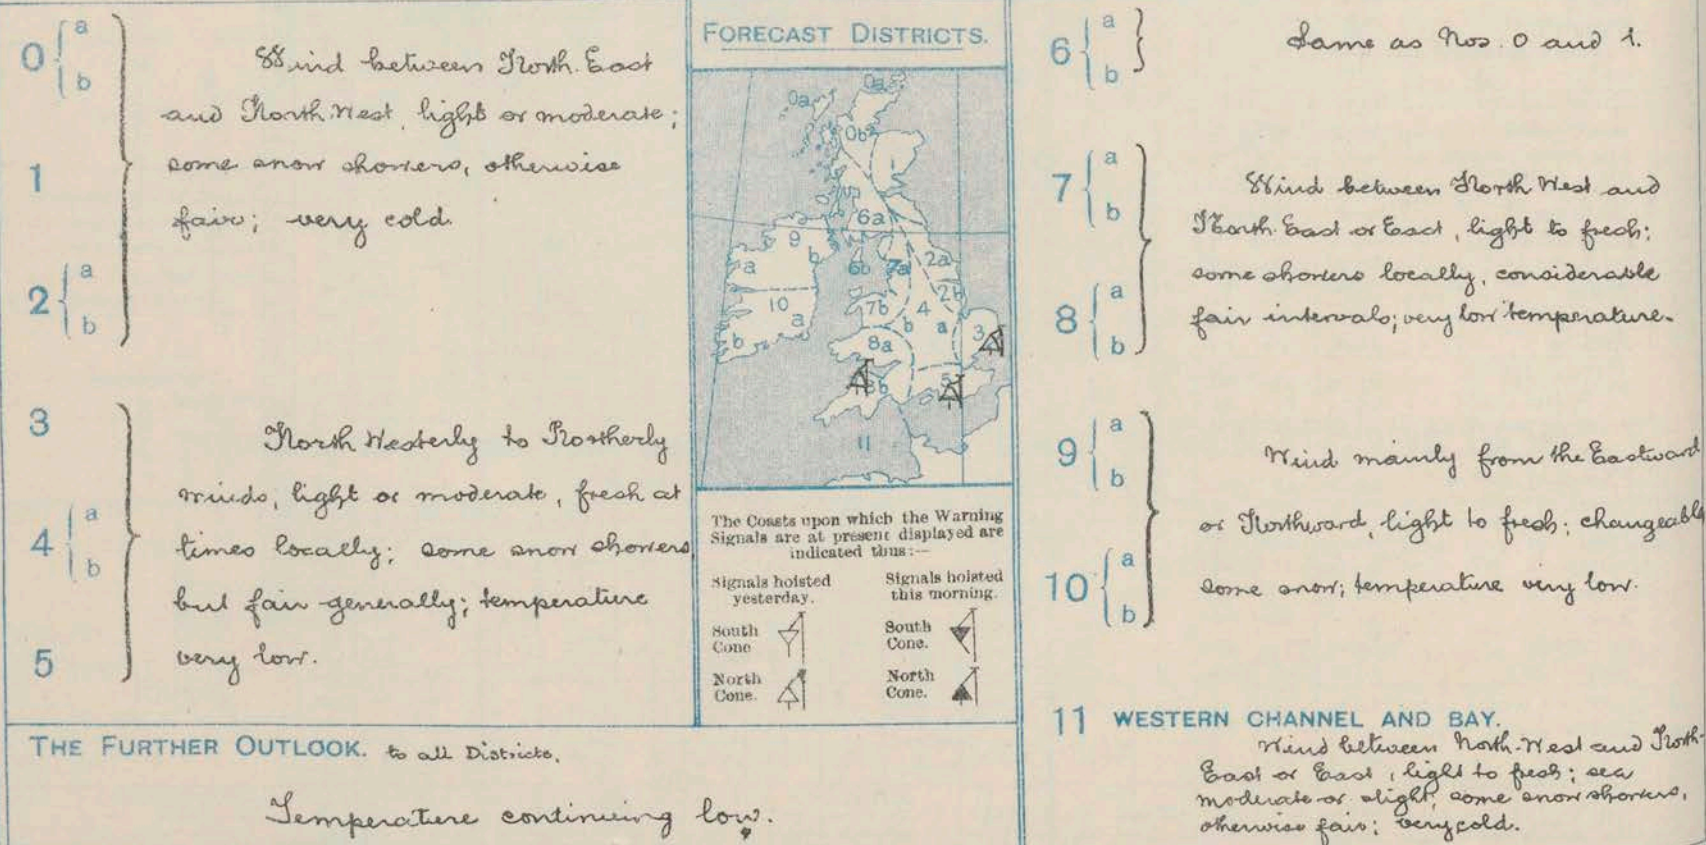 0 { a
b
1
2 { a
b
Wind between North East
and North West, light or moderate;
some snow showers, otherwise
fair; very cold.
3
4 { a
b
5
North Westerly to Northerly
winds, light or moderate, fresh at
times locally; some snow showers
but fair generally; temperature
very low.
THE FURTHER OUTLOOK. to all Districts.
Temperature continuing low.
FORECAST DISTRICTS.
0a
0a
0b
6a
9
b
a
6b
7a
2a
10
a
b
7b
4
2b
b
a
3
8a
8b
5
11
The Coasts upon which the Warning
Signals are at present displayed are
indicated thus:—
Signals hoisted
yesterday.
Signals hoisted
this morning.
South
Cone
South
Cone.
North
Cone.
North
Cone.
6 { a
b }
Same as Nos. 0 and 1.
7 { a
b
8 { a
b
Wind between North West and
North East or East, light to fresh;
some showers locally, considerable
fair intervals; very low temperature.
9 { a
b
10 { a
b
Wind mainly from the Eastward
or Northward, light to fresh; changeable
some snow; temperature very low.
11 WESTERN CHANNEL AND BAY.
Wind between North-West and North-
East or East, light to fresh; sea
moderate or slight, some snow showers,
otherwise fair; very cold.